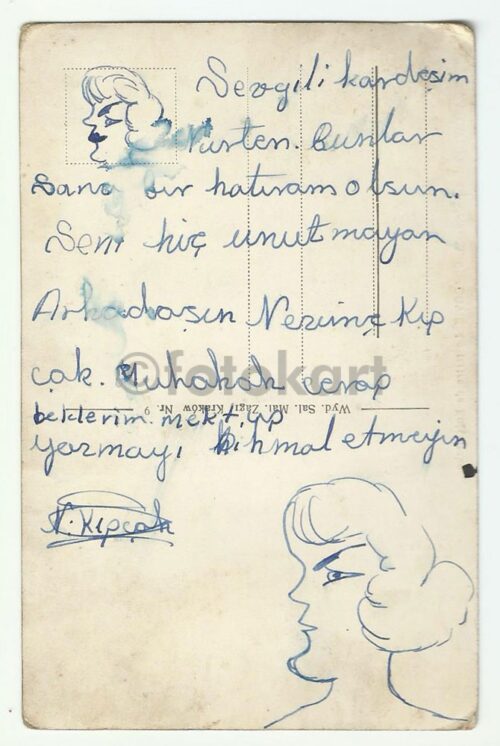 Sevgili kardeşim
Nurten. Bunlar
Sana bir hatıram olsun.
Seni hiç unutmayan
Arkadaşın Nerinç Kıp
çak. Muhakak cevap
©fotokart
Wyd. Sal. Mal. Zagr. Kraków Nr. 9
beklerim. mektup
yazmayı ihmal etmeyin
N. Kıpçak